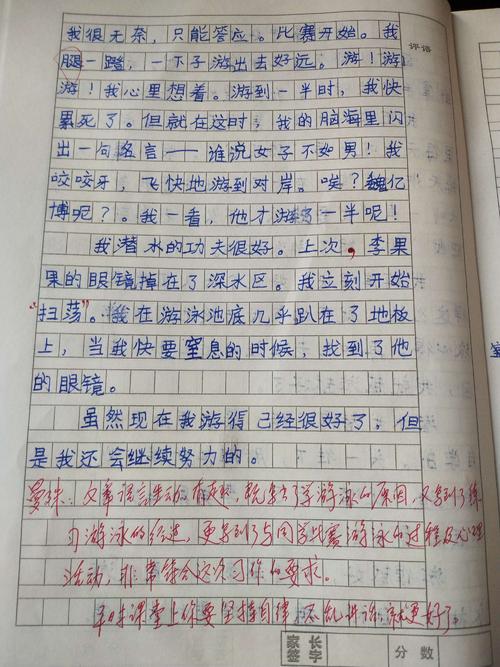 评语
我很无奈，只能答应。比赛开始。我
腿一蹬，一下子游出去好远。游！游
游！我心里想着。游到一半时，我快
累死了。但就在这时，我的脑海里闪
出一句名言——谁说女子不如男！我
咬咬牙，飞快地游到对岸。唉？魏亿
博呢？。我一看，他才游了一半呢！
我潜水的功夫很好。上次，李果
果的眼镜掉在了深水区。我立刻开始
“扫荡”。我在游泳池底几乎趴在了地板
上，当我快要窒息的时候，找到了他
的眼镜。
虽然现在我游得已经很好了。但
是我还会继续努力的。
文章语言生动有趣，既写了学游泳的原因，又写到了练
习游泳的经过，更写到了与同学比赛游泳的过程及心理
活动，非常符合这次习作的要求。
平时课堂上你要坚持自律，不乱讲话，就更好了。
家长
签字
分数